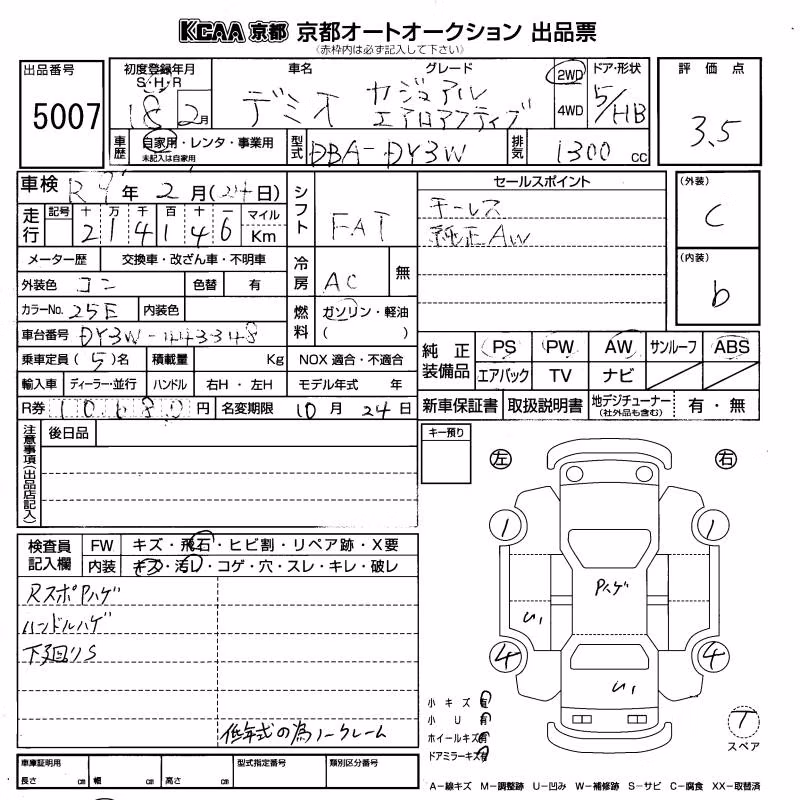 KCAA 京都 京都オートオークション 出品票
(赤枠内は必ず記入して下さい)
出品番号
5007
初度登録年月
S・H・R
18 2月
車名
デミオ
グレード
カジュアル
エアロアクティブ
2WD
4WD
ドア・形状
5/HB
評価点
3.5
車歴
自家用・レンタ・事業用
未記入は自家用
型式
DBA-DY3W
排気
1300 cc
車検
R 9年 2月(24日)
走行
記号 十 万 千 百 十 一 マイル
2 1 4 1 4 6 Km
シフト
FAT
セールスポイント
キーレス
純正AW
(外装)
C
(内装)
b
メーター歴
交換車・改ざん車・不明車
冷房
AC
無
外装色
コン
色替
有
カラーNo. 25E
内装色
燃料
ガソリン・軽油
( )
車台番号 DY3W-443348
乗車定員(5)名
積載量
Kg
NOX 適合・不適合
輸入車
ディーラー・並行
ハンドル
右H・左H
モデル年式 年
R券 10680円
名変期限 10月 24日
純正装備品
PS PW AW サンルーフ ABS
エアバック TV ナビ
新車保証書 取扱説明書 地デジチューナー(社外品も含む) 有・無
注意事項(出品店記入)
後日品
キー預り
左
右
検査員記入欄
FW キズ・飛石・ヒビ割・リペア跡・X要
内装 キズ・汚レ・コゲ・穴・スレ・キレ・破レ
RスポPハゲ
ハンドルハゲ
下廻りS
低年式の為ノークレーム
1
1
Pハゲ
U1
4
4
U1
小キズ 有
小U 有
ホイールキズ 有
ドアミラーキズ 有
T
スペア
車庫証明用
長さ cm 幅 cm 高さ cm
型式指定番号
類別区分番号
A-線キズ M-調整跡 U-凹み W-補修跡 S-サビ C-腐食 XX-取替済